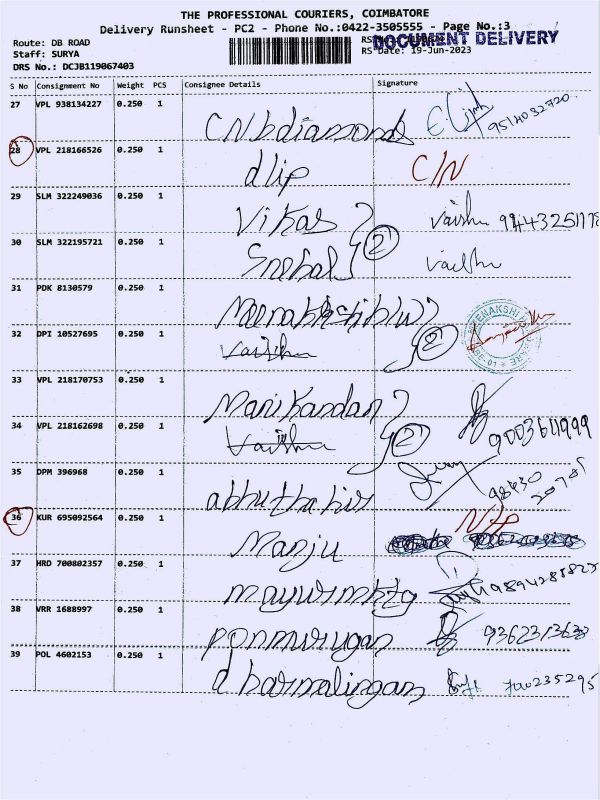 THE PROFESSIONAL COURIERS, COIMBATORE
Delivery Runsheet - PC2 - Phone No.:0422-3505555 - Page No.:3
Route: DB ROAD
DOCUMENT DELIVERY
Staff: SURYA
RS Date: 19-Jun-2023
DRS No.: DCJB119067403
S No Consignment No Weight PCS Consignee Details Signature
27 VPL 938134227 0.250 1
CNbdiamonds 9514032720
28 VPL 218166526 0.250 1
dlip C/N
29 SLM 322249036 0.250 1
Vikas Vaishu
30 SLM 322195721 0.250 1
Snehal 2 Vaishu
31 PDK 8130579 0.250 1
32 DPI 10527695 0.250 1
Vaishu 2
33 VPL 218170753 0.250 1
Manikandan 9003611999
34 VPL 218162698 0.250 1
Vaishu 2
35 DPM 396968 0.250 1
36 KUR 695092564 0.250 1
Manju
37 HRD 700802357 0.250 1
mayurmktg
38 VRR 1688997 0.250 1
ponmurugan 9362313633
39 POL 4602153 0.250 1
dharmalingam